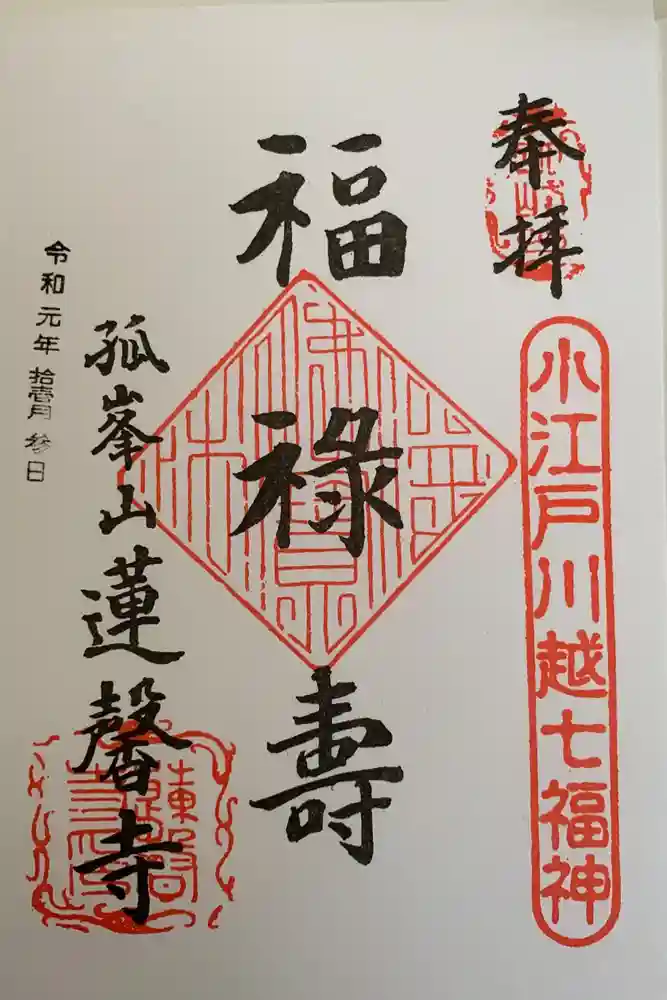 奉拝
小江戸川越七福神
福禄壽
孤峯山蓮馨寺
令和元年拾壹月参日